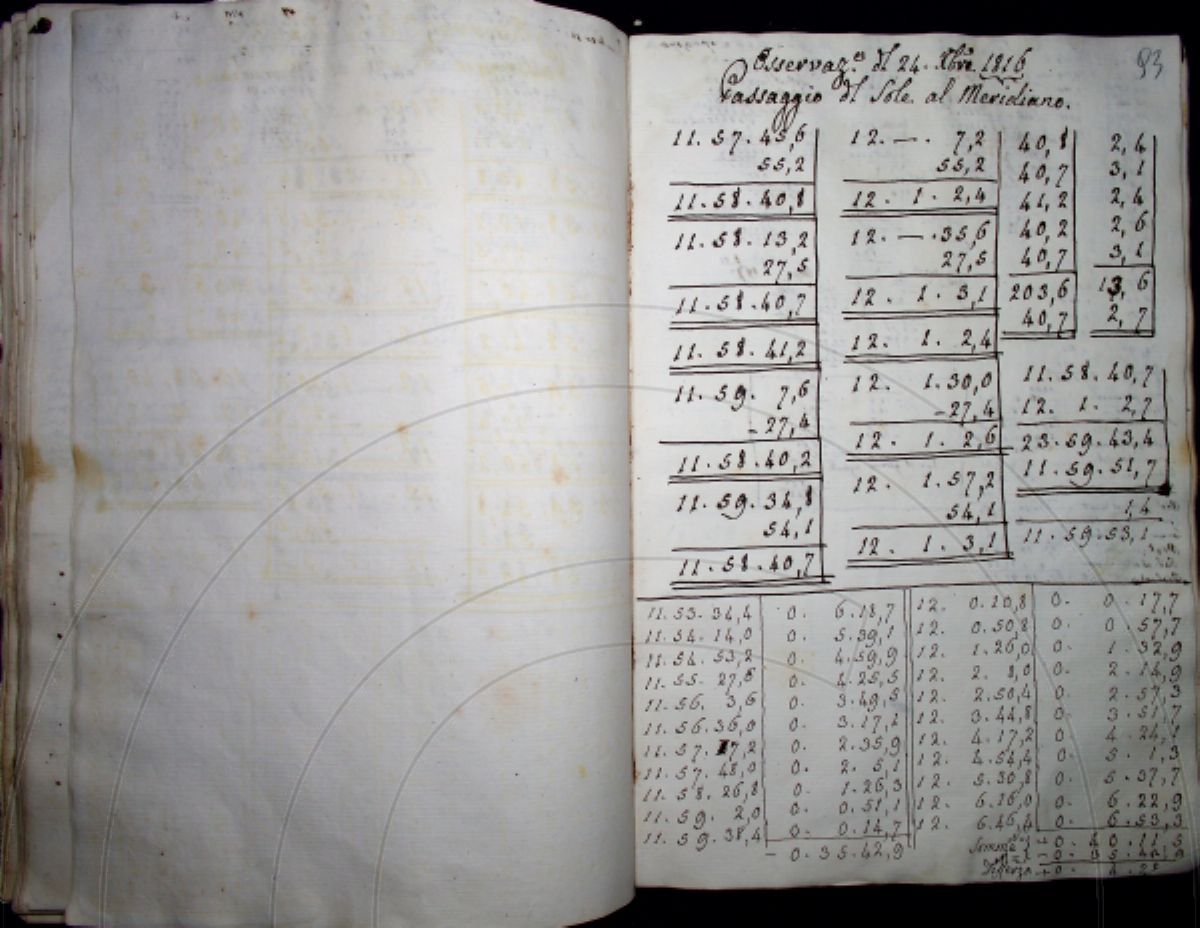 93
Osservaz.ni dl 24. Xbre 1816
Passaggio dl Sole al Meridiano.
11. 57. 45,6
55,2
11. 58. 40,8
11. 58. 13,2
27,5
11. 58. 40,7
11. 58. 41,2
11. 59. 7,6
- 27,4
11. 58. 40,2
11. 59. 34,8
54,1
11. 58. 40,7
12. —. 7,2
55,2
12. 1. 2,4
12. —. 35,6
27,5
12. 1. 3,1
12. 1. 2,4
12. 1. 30,0
- 27,4
12. 1. 2,6
12. 1. 57,2
54,1
12. 1. 3,1
40,8
40,7
41,2
40,2
40,7
203,6
40,7
2,4
3,1
2,4
2,6
3,1
13,6
2,7
11. 58. 40,7
12. 1. 2,7
23. 59. 43,4
11. 59. 51,7
1,4
11. 59. 53,1
11. 53. 34,4 0. 6. 18,7 12. 0. 10,8 0. 0. 17,7
11. 54. 14,0 0. 5. 39,1 12. 0. 50,8 0. 0. 57,7
11. 54. 53,2 0. 4. 59,9 12. 1. 26,0 0. 1. 32,9
11. 55. 27,6 0. 4. 25,5 12. 2. 8,0 0. 2. 14,9
11. 56. 3,6 0. 3. 49,5 12. 2. 50,4 0. 2. 57,3
11. 56. 36,0 0. 3. 17,1 12. 3. 44,8 0. 3. 51,7
11. 57. 17,2 0. 2. 35,9 12. 4. 17,2 0. 4. 24,1
11. 57. 48,0 0. 2. 5,1 12. 4. 54,4 0. 5. 1,3
11. 58. 26,8 0. 1. 26,3 12. 5. 30,8 0. 5. 37,7
11. 59. 2,0 0. 0. 51,1 12. 6. 16,0 0. 6. 22,9
11. 59. 38,4 0. 0. 14,7 12. 6. 46,4 0. 6. 53,3
- 0. 35. 42,9 Somme + 0. 40. 11,5
- 0. 35. 42,9
Differza + 0. 4. 28